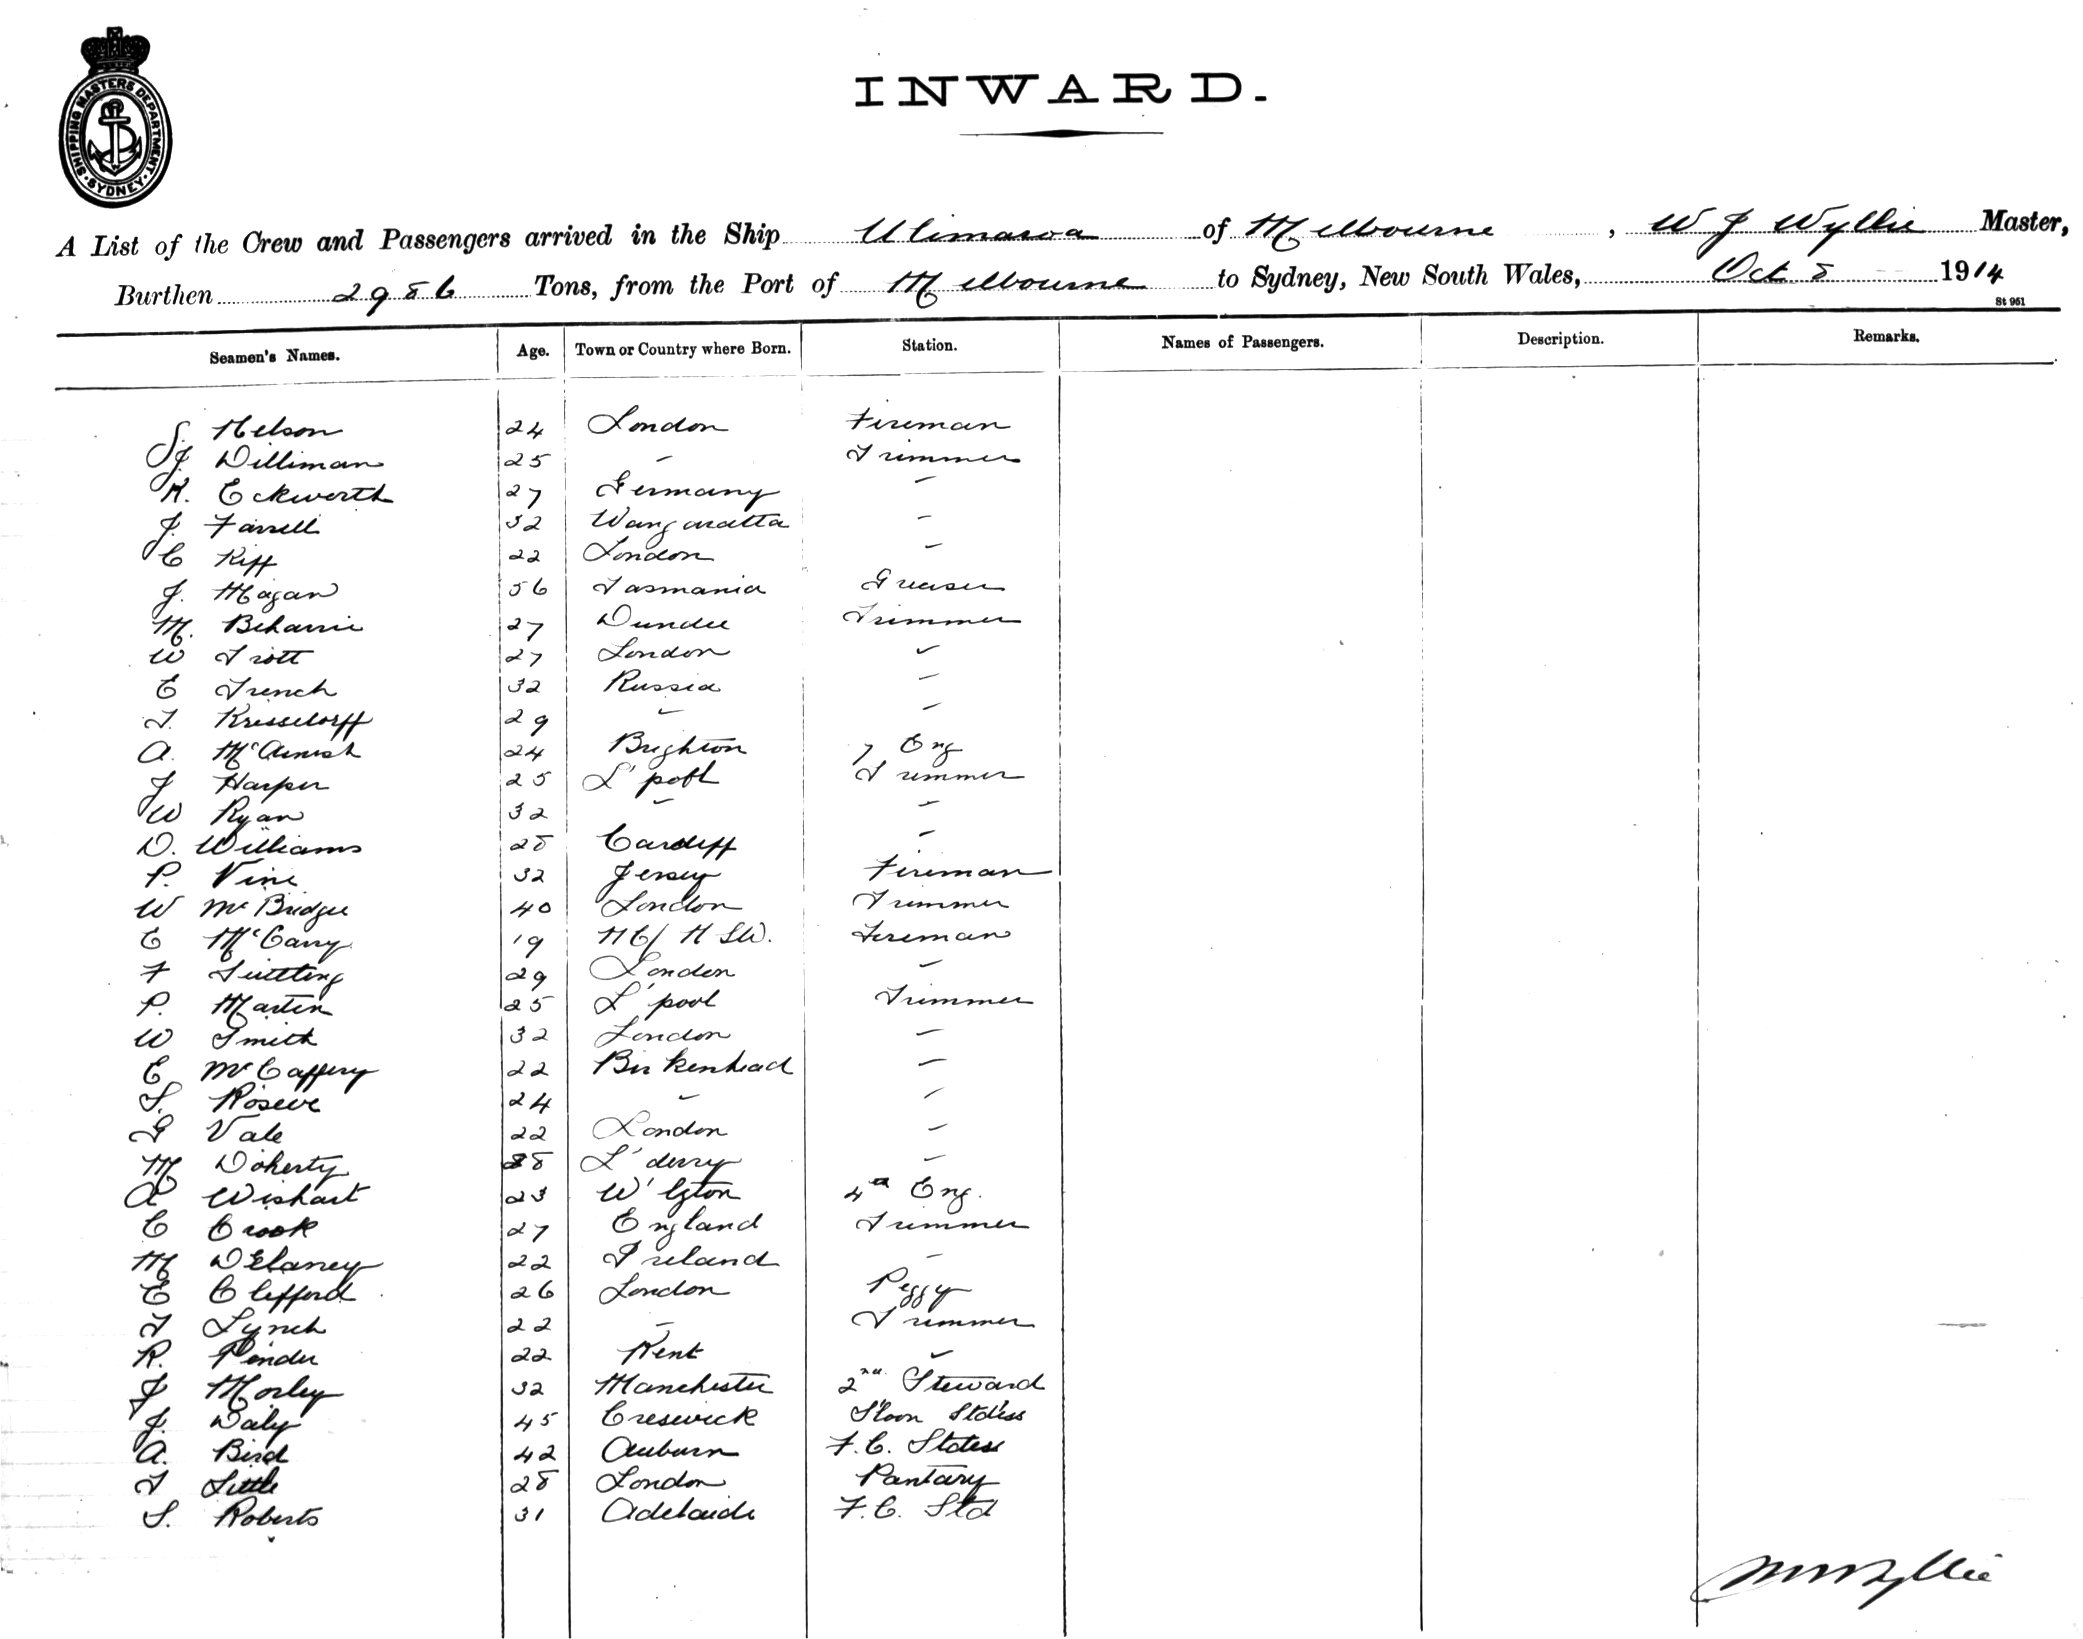 SHIPPING MASTERS DEPARTMENT
SYDNEY
INWARD.
A List of the Crew and Passengers arrived in the Ship Ulimaroa of Melbourne, W J Wyllie Master,
Burthen 2986 Tons, from the Port of Melbourne to Sydney, New South Wales, Oct 8 1914
St 961
Seamen's Names. Age. Town or Country where Born. Station. Names of Passengers. Description. Remarks.
S. Nelson 24 London Fireman
J. Williman 25 - Trimmer
K. Eckworth 27 Germany -
J. Farrell 32 Wangaratta -
C Kiff 22 London -
J. Magan 56 Tasmania Greaser
M. Beharrie 27 Dundee Trimmer
W Trott 27 London -
E French 32 Russia -
T. 29 - -
A. 24 Brighton 7 Eng
J Harper 25 L'pool Trimmer
W Ryan 32 - -
D. Williams 28 Cardiff -
P. Vine 32 Jersey Fireman
W McBridge 40 London Trimmer
C McCarry 19 N C/ N S.W. Fireman
F 29 London -
P. Martin 25 L'pool Trimmer
W Smith 32 London -
E McCaffery 22 Birkenhead -
S. 24 - -
G Vale 22 London -
M Doherty 28 L'derry -
A Wishart 23 W'lgton 4th Eng.
C Crook 27 England Trimmer
M Delaney 22 Ireland -
E Clifford 26 London Peggy
T Lynch 22 - Trimmer
R. Pinder 22 Kent -
J Morley 32 Manchester 2nd Steward
J. Daly 45 Creswick S'loon Stdess
A. Bird 42 Auburn F.C. Stdess
T Little 28 London Pantary
S. Roberts 31 Adelaide F.C. Std
W J Wyllie